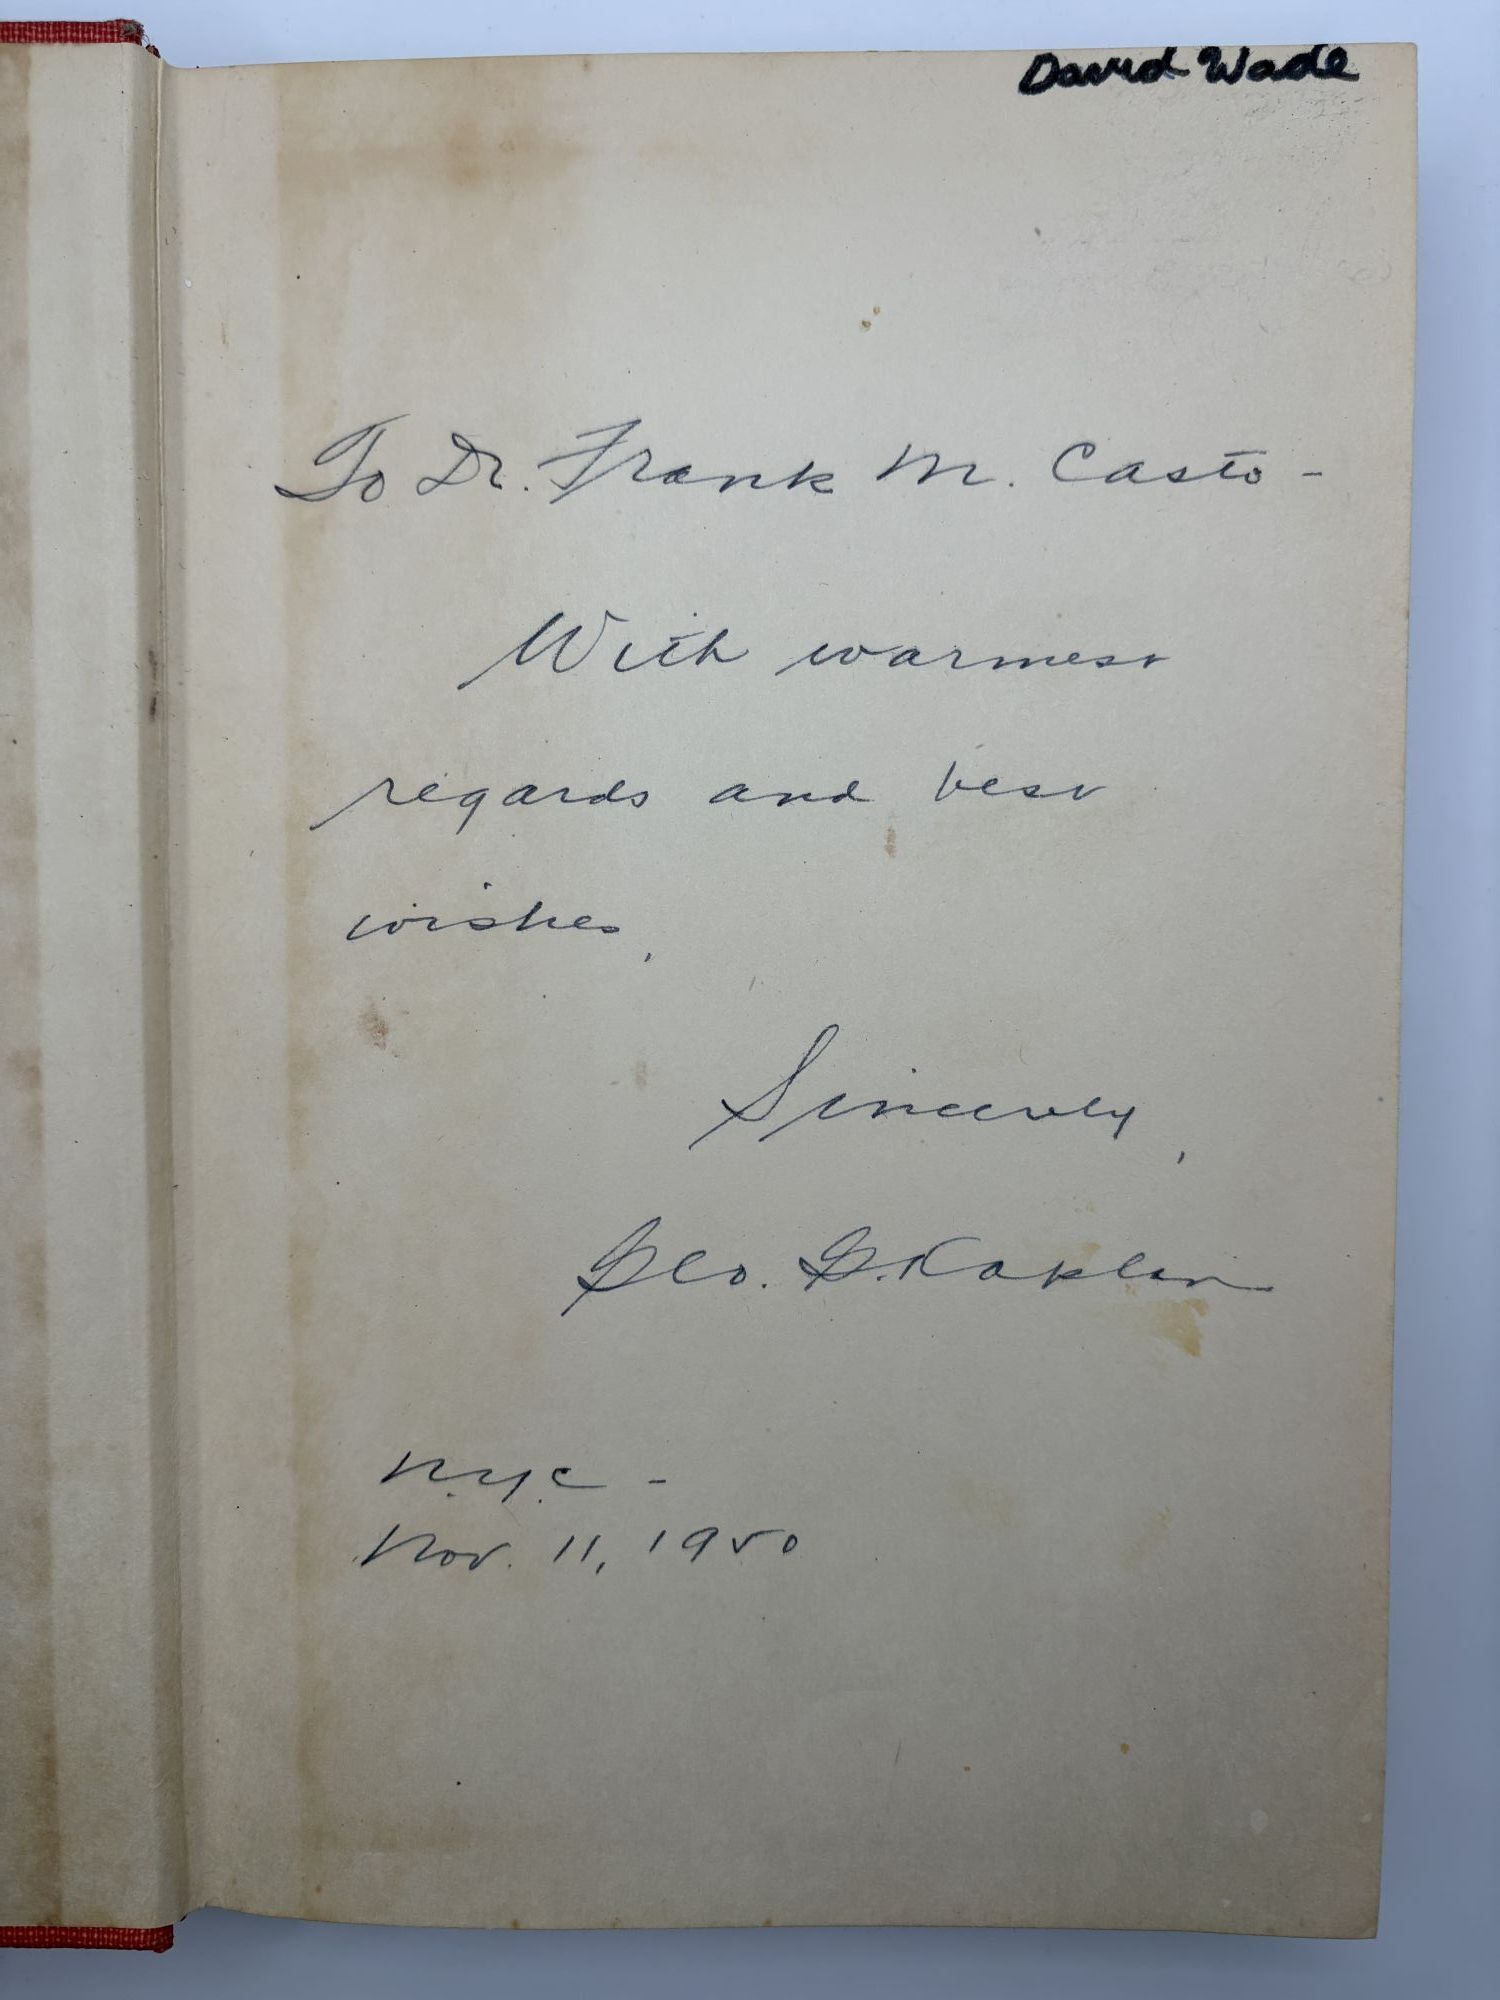 David Wade
To Dr. Frank M. Casto -
With warmest
regards and best
wishes,
Sincerely,
Geo. G. Kaplan
N.Y.C -
Nov. 11, 1950